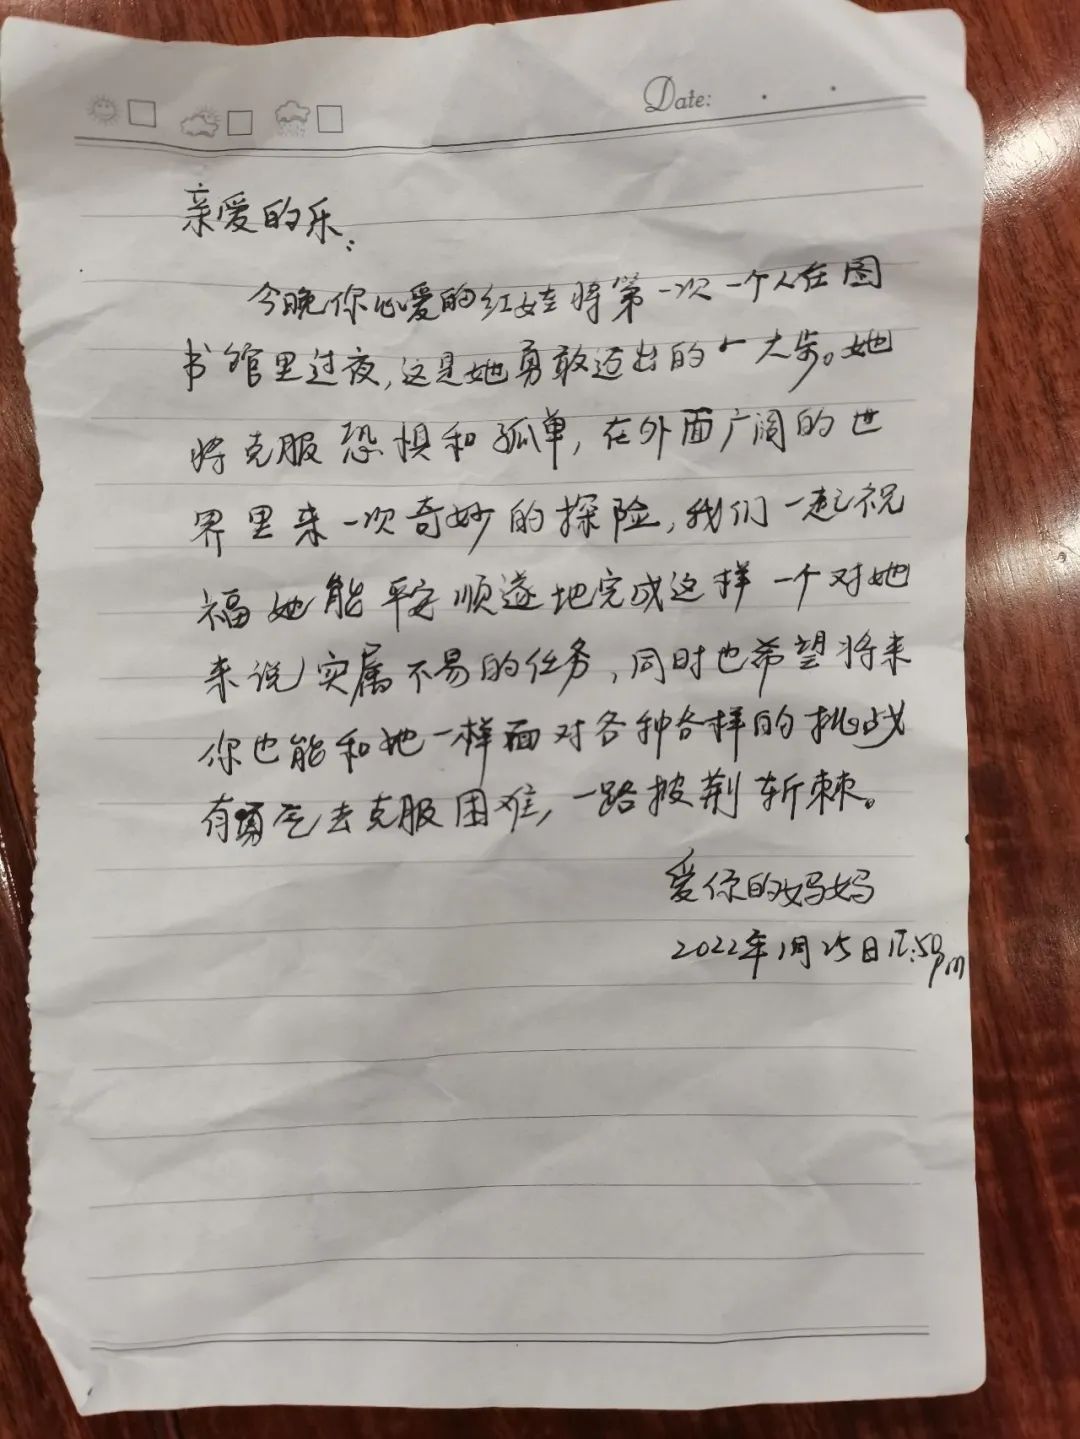 Date:
亲爱的乐:
今晚你心爱的红娃将第一次一个人在图
书馆里过夜,这是她勇敢迈出的一大步。她
将克服恐惧和孤单,在外面广阔的世
界里来一次奇妙的探险,我们一起祝
福她能平安顺遂地完成这样一个对她
来说实属不易的任务,同时也希望将来
你也能和她一样面对各种各样的挑战
有勇气去克服困难,一路披荆斩棘。
爱你的妈妈
2022年1月25日 :50pm